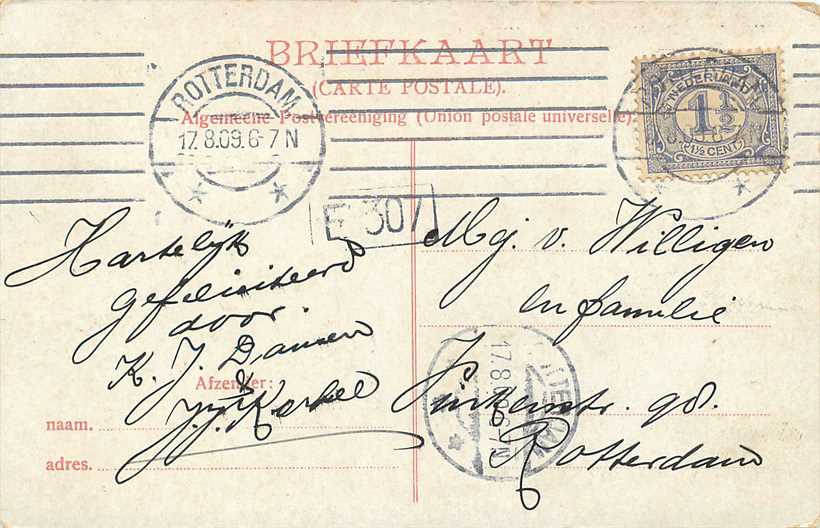 BRIEFKAART
(CARTE POSTALE).
Algemeene Postvereeniging (Union postale universelle).
ROTTERDAM
17.8.09.6-7N
NEDERLAND
1½
1½ CENT
F 307
Hartelijk
gefeliciteerd
door
K. J. Damen
&
J. J. Korbel
Afzender:
naam.
adres.
Mej. v. Willigen
en familie
98.
Rotterdam
17.8.09